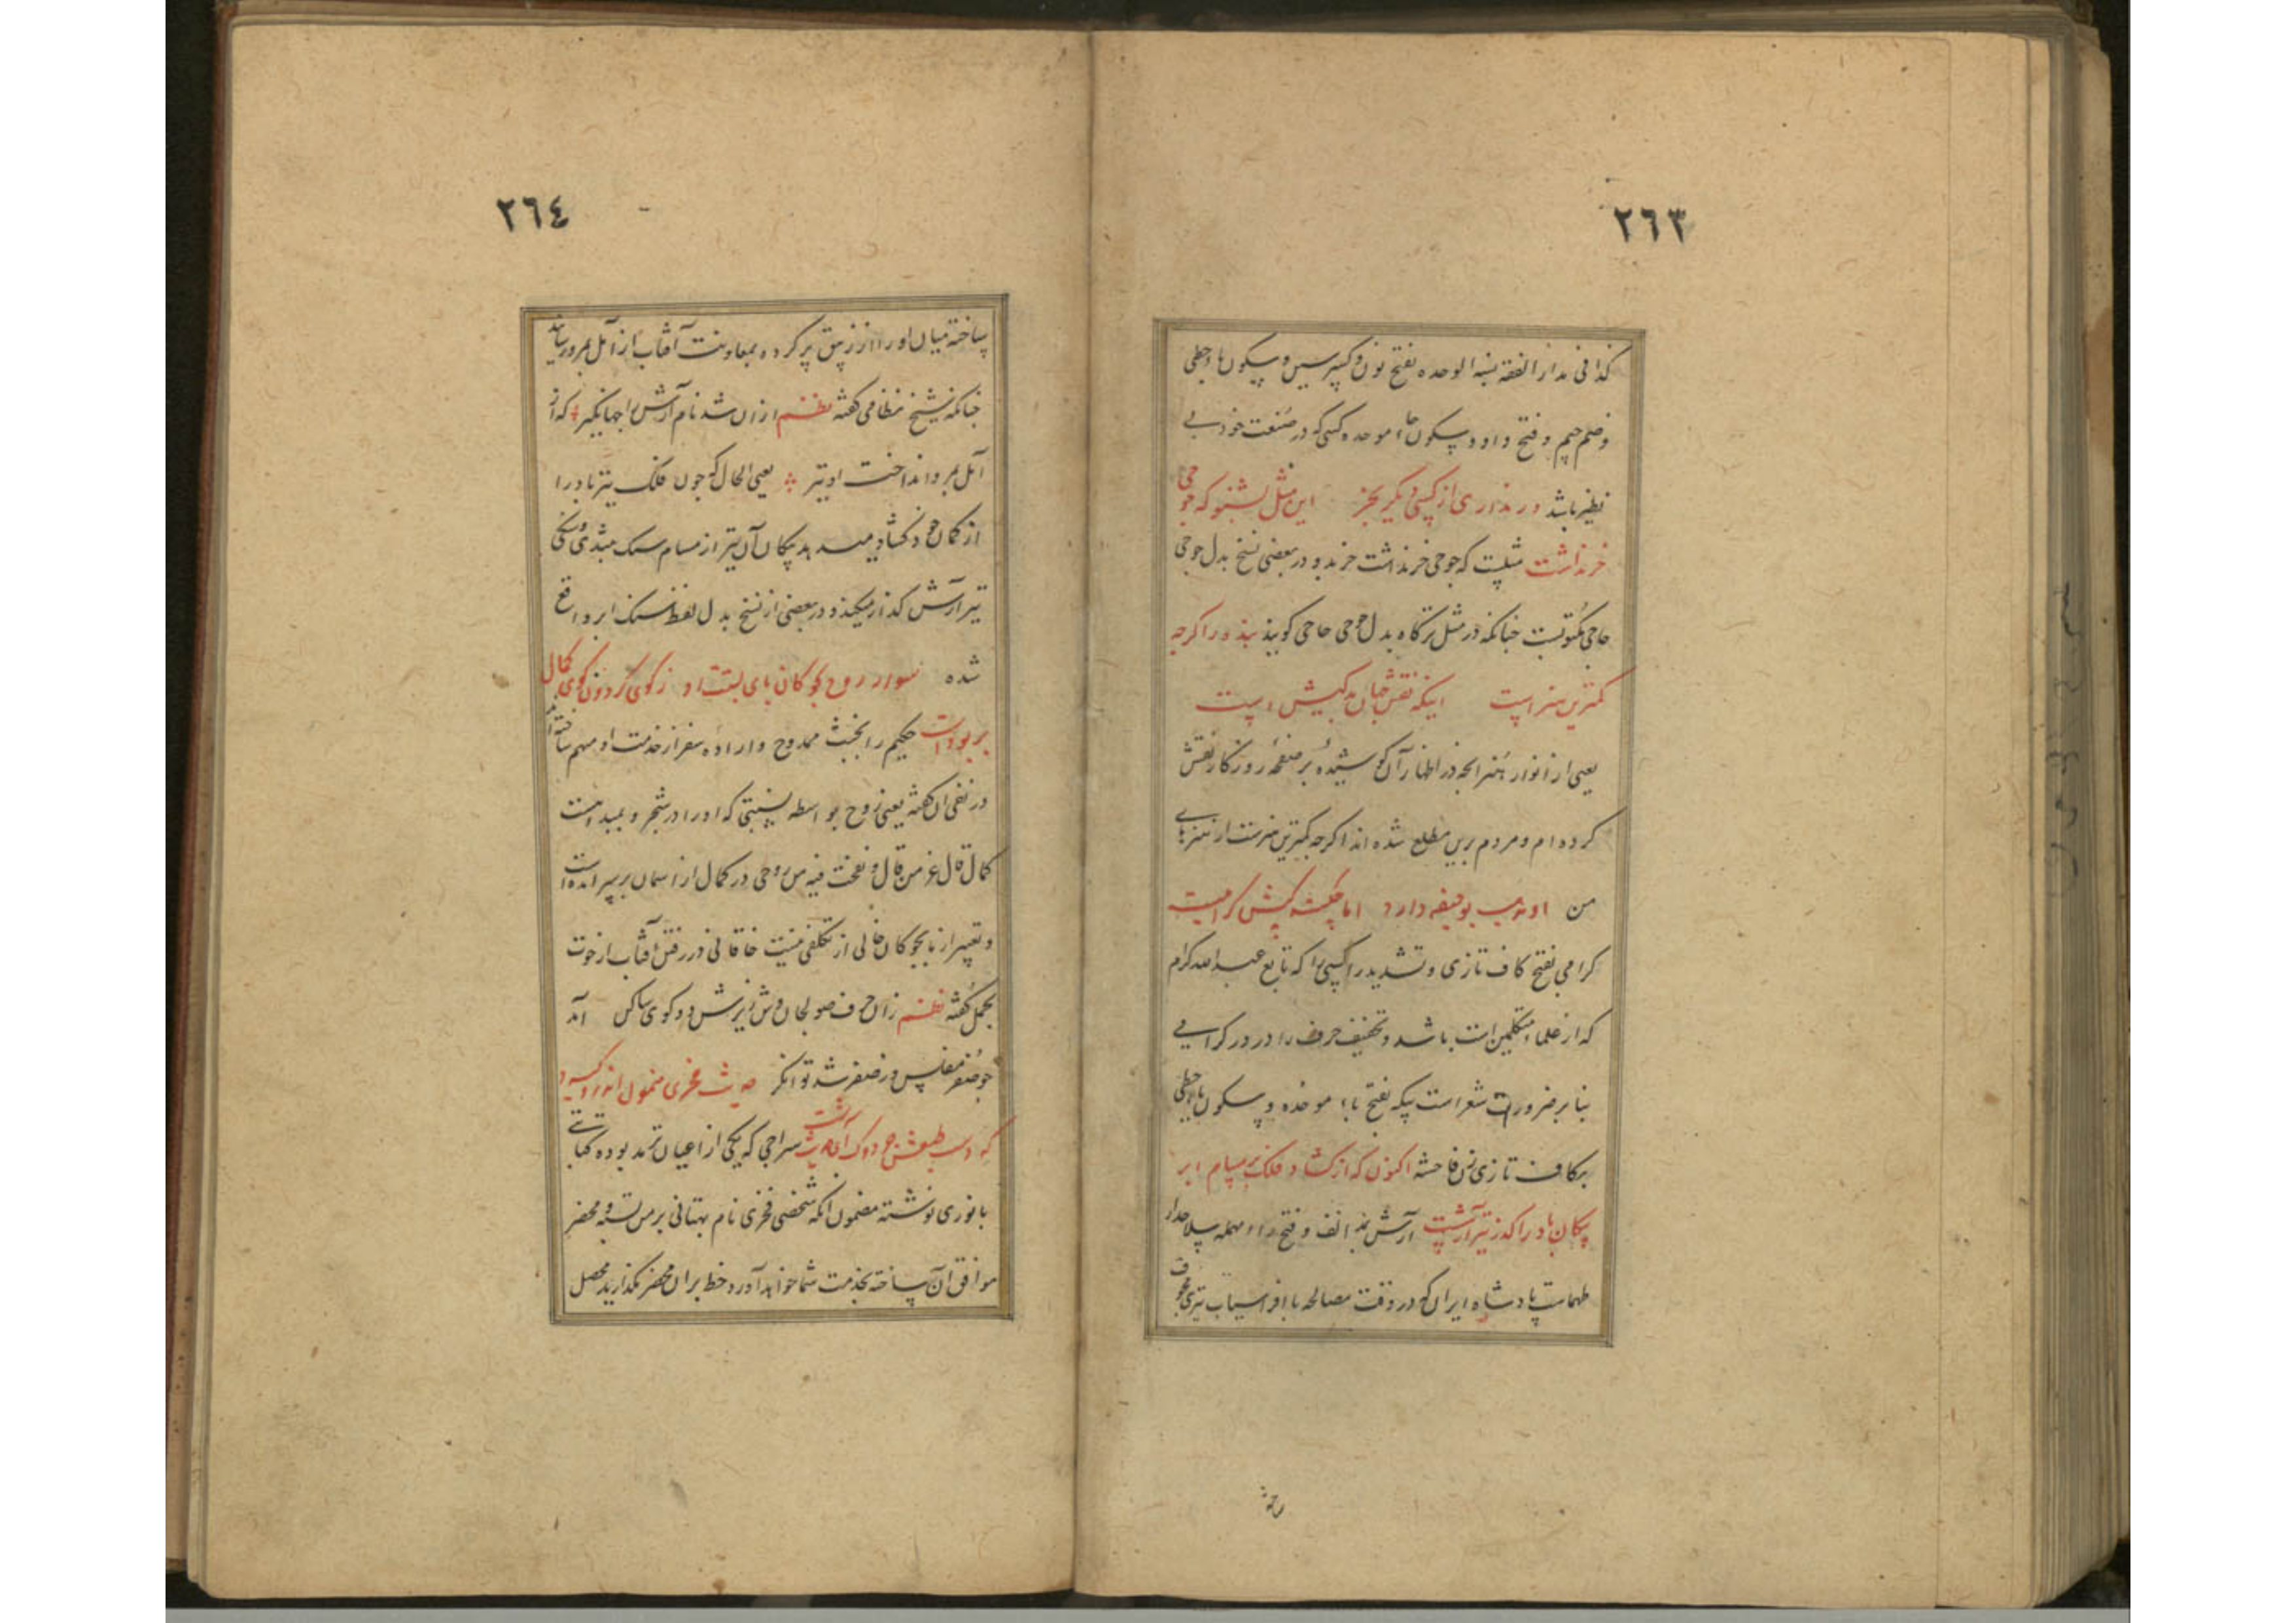 ٢٦٣
کذا فی مدار الفقه نسبة الوحده بفتح نون و کسر سین و سکون یاء حطی
و ضم جیم و فتح واو و سکون حاء موحده کسی که در صنعت خود بی
نظیر باشد ور نداری از کسی دیگر بخر این مثل بشنو که جوحی
خر نداشت مثلیست که جوحی خر نداشت خرید و در بعضی نسخ بدل جوحی
حاجی مکتوبست چنانکه در مثل ترکاه بدل جوحی حاجی کویند بنده را کرچه
کمترین هنر است اینکه نقش جهان بدکیش است
یعنی از انوار هنر انچه در اظهار آن کوشیده بر صفحه روزکار نقش
کرده ام و مردم برین مطلع شده اند اکرچه کمترین هنرست از هنرهای
من او مذهب بوحنیفه دارد اما کیش کرامیست
کرامی بفتح کاف تازی و تشدید را کسی را که تابع عبدالله کرام
که از علماء متکلمین است باشد و تخفیف حرف را در کرامی
بنا بر ضرورت شعر است بیکه بفتح باء موحده و سکون یاء حطی
بکاف تازی زن فاحشه اکنون که از کشاد فلک بر مسام ابر
پیکان باد را کذر تیر آرشست آرش بمد الف و فتح راء مهمله سلاحدار
طهماسب پادشاه ایران که در وقت مصالحه با افراسیاب تیری مجوف
٢٦٤
ساخته میان او را از زیبق پر کرده بمعاونت آفتاب از آمل بمرو رساند
چنانکه شیخ نظامی کفته نظم از ان شد نام آرش را جهانکیر که از
آمل بمرو انداخت او تیر یعنی الحال که چون فلک تیر باد را
از کمان خود کشاد میدهد پیکان آن تیر از مسام سنک
تیر آرش کذار میکند و در بعضی از نسخ بدل لفظ سنک ابر واقع
شده سوار روح که کان پای بست او ز کوی کردون کوی کمال
بربودست حکیم را بخبث ممدوح و اراده سفر از خدمت او متهم ساخته
در نفی ان کفته یعنی روح بواسطه نسبتی که او را در شجر و بمبدا هست
کمال قال عز من قال و نفخت فیه من روحی در کمال از اسمان بر سر آمده است
و تعبیر از پا بچوکان خالی از تکلفی نیست خاقانی در رفتن آفتاب از حوت
بحمل کفته نظم زان حرف صولجان وش زیرش دو کوی ساکن آمد
چو صفر مفلس وز صفر شد توانکر حدیث فخری منحول
که سراجی که یکی از اعیان ترمد بوده کتابتی
بانوری نوشته مضمون انکه شخصی فخری نام بهتانی بر من بسته و محضر
موافق آن ساخته بخدمت شما خواهد آورد خط بران محضر مکذارید محصل